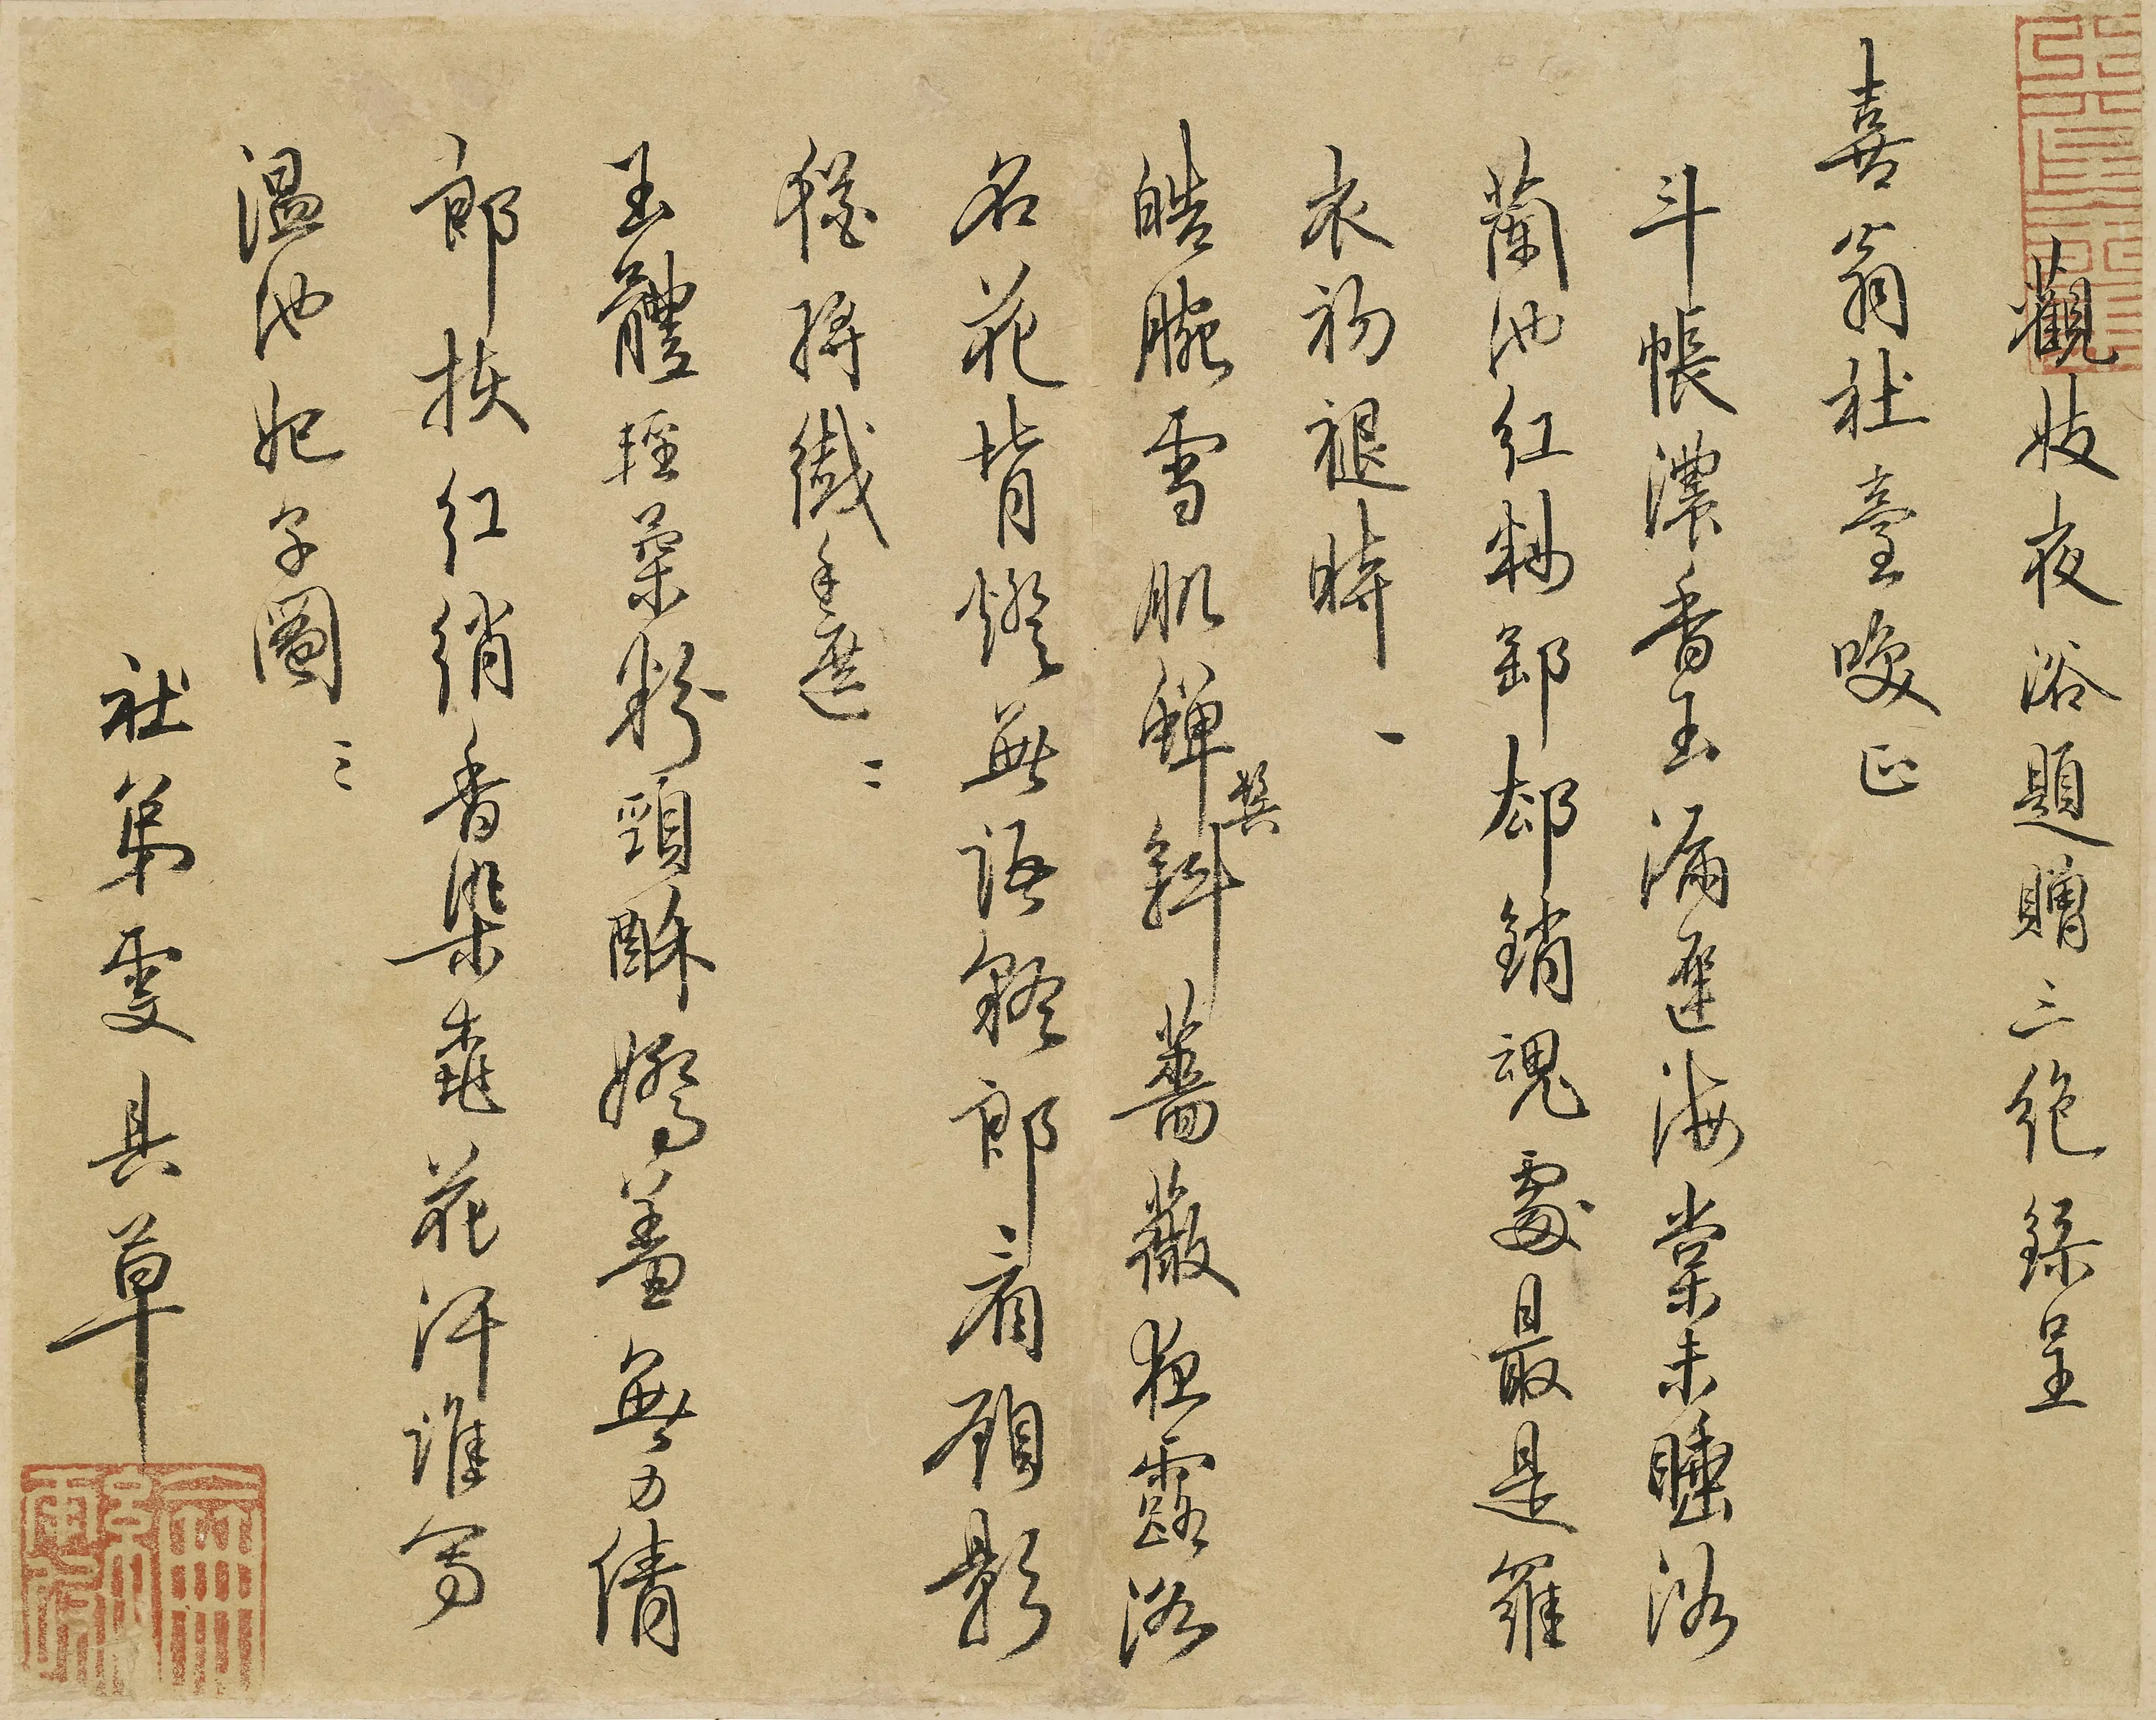 觀妓夜浴題贈三絕錄呈
喜翁社臺咲正
斗帳濃香玉漏遲海棠未睡浴
蘭池紅粧卸却銷魂處最是羅
衣初褪時 一
皓腕雪肌軃鬢斜薔薇夜露浴
名花背燈無語郎看顧影
猶將纖手遮 二
玉體輕柔粉頸酥嬌羞無力倩
郎扶紅綃香染桃花汗誰寫
溫池妃子圖 三
社弟雯具草